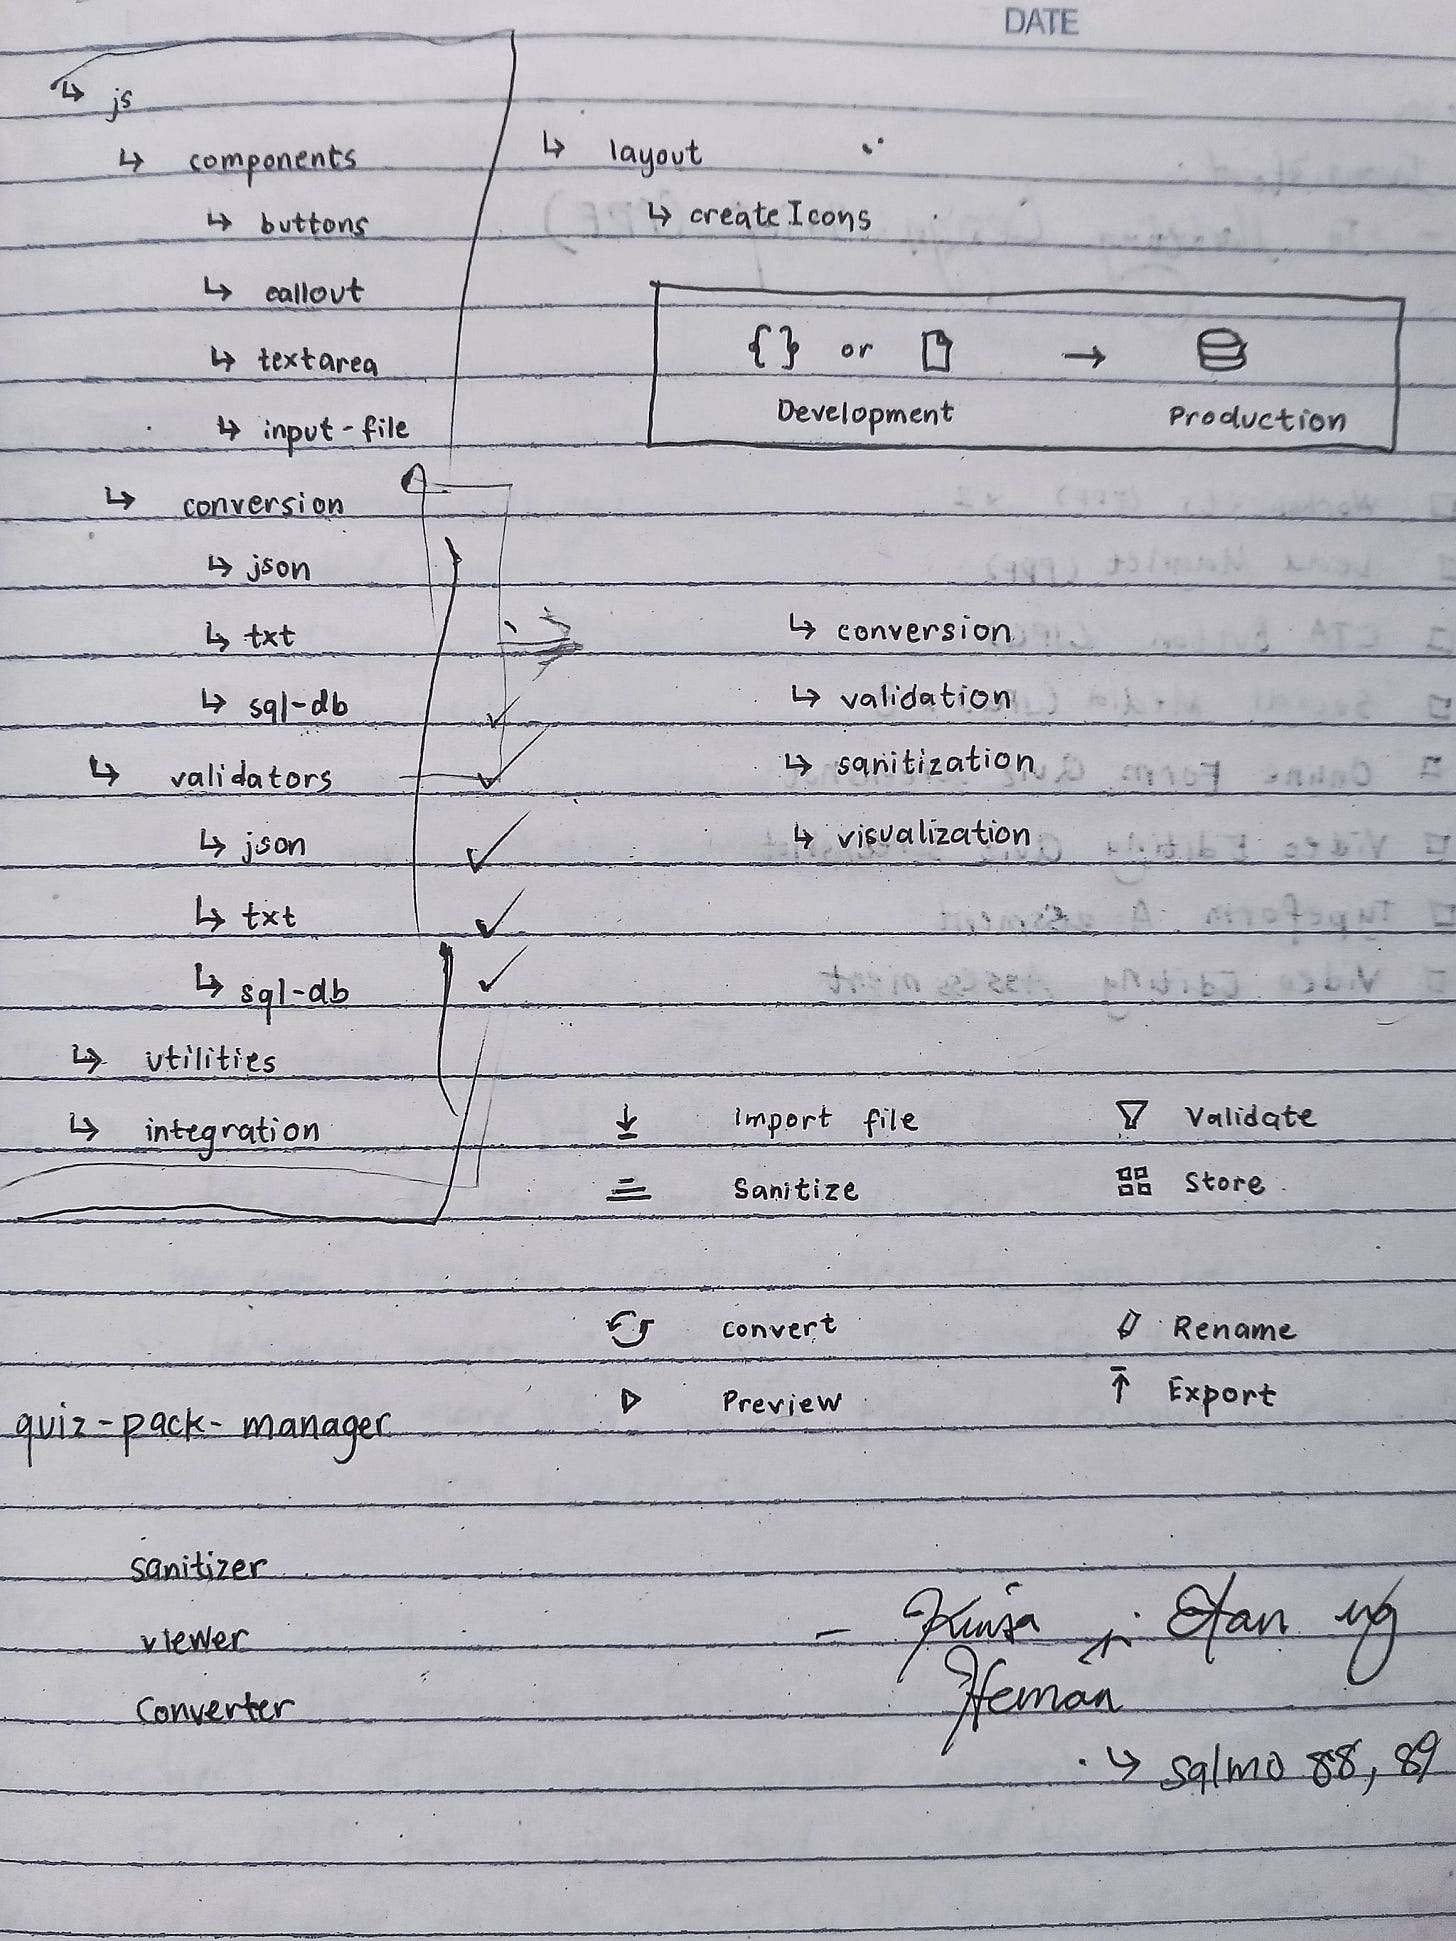 DATE
↳ js
↳ components
↳ buttons
↳ callout
↳ textarea
↳ input-file
↳ conversion
↳ json
↳ txt
↳ sql-db
↳ validators
↳ json
↳ txt
↳ sql-db
↳ utilities
↳ integration
↳ layout
↳ createIcons
{ } or →
Development Production
↳ conversion
↳ validation
↳ sanitization
↳ visualization
Import file Validate
Sanitize Store
convert Rename
Preview Export
quiz-pack-manager
sanitizer
viewer
Converter
Etan ng
Heman
↳ salmo 88, 89